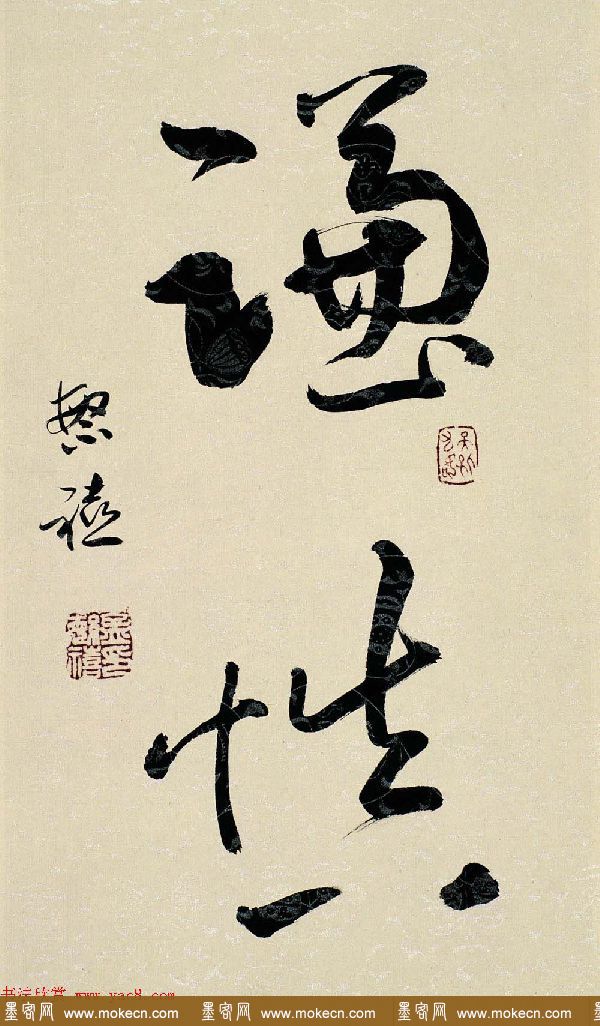 謙慎
繁禧
孟印繁禧
书法欣赏 www.yac8.com
墨客网 www.mokecn.com 墨客网 www.mokecn.com 墨客网 www.mokecn.com